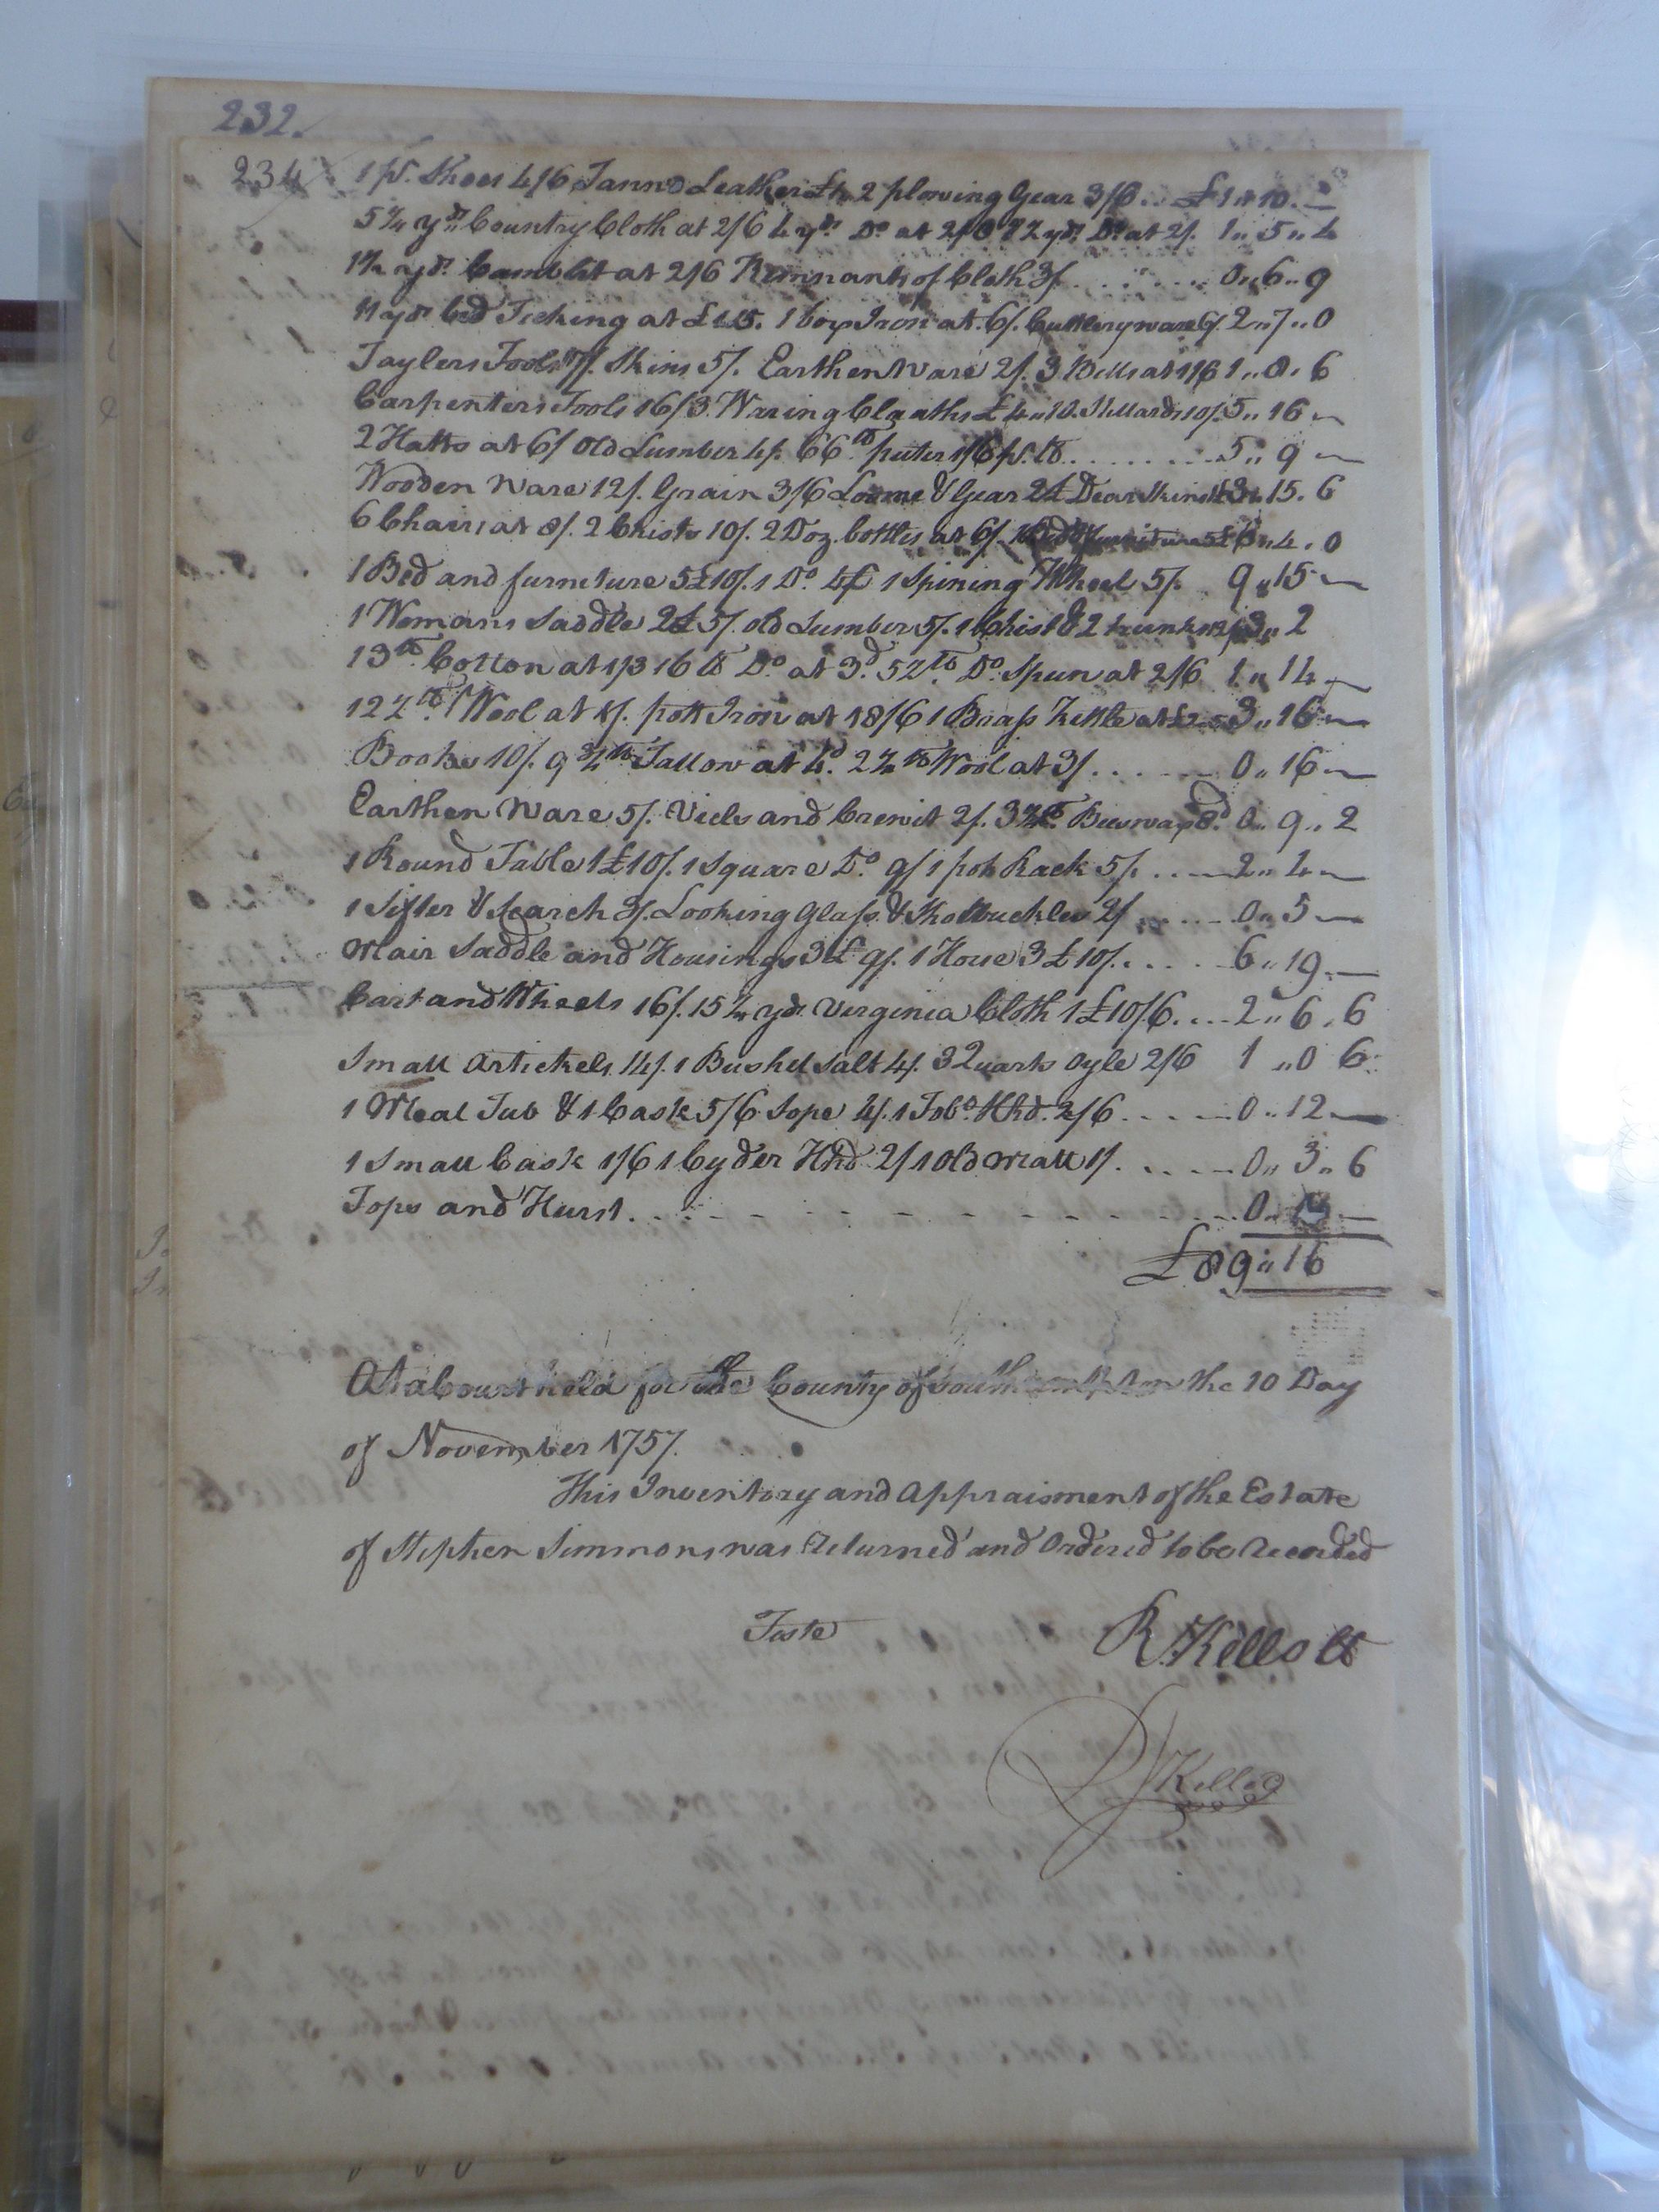 232.
234 1 pr. Shoes 4/6 Tannd Leather 2 plowing Gear 3/6 .. £1 " 10 . —
5¼ yds. Country Cloth at 2/6 4 yds. Do. at 2/ yds. Do. at 2/. 1 " 5 " 4
yds. Camblit at 2/6 Remnants of Cloth 3/. . . . . . . . 0 " 6 " 9
11 yds. bed Ticking at 1 box Iron at 6/. Cutlery ware 6/. 2 " 7 " 0
Taylers Tools Skins 5/. Earthen Ware 2/. 3 Bells at 1/6 1 " 0 " 6
Carpenters Tools 16/ 3 Waring Cloaths £4 " 10. Stillards 10/. 5 " 16 —
2 Hatts at 6/ Old Lumber 4/. 66 lb. puter 1/6 pr. lb. . . . . . . 5 " 9 —
Wooden Ware 12/. Grain 3/6 Loome & Gear 2£ Dear Skins 15 . 6
6 Chairs at 8/. 2 Chists 10/. 2 Doz. bottles at 6/. 1 Bed & furniture 5£ 4 . 0
1 Bed and furneture 5£10/. 1 Do. 4£ 1 Spining Wheel 5/. 9 " 15 —
1 Womans Saddle 2£5/. old Lumber 5/. 1 Chist & 2 trunks 3 " 2
13 lb. Cotton at 1/3 16 lb Do. at 3d. 5½ lb. Do. Spun at 2/6 1 " 14 —
12½ lb. Wool at 1/. pott Iron at 18/6 1 Brass Kettle at 3 " 16 —
Books 10/. 9¾ lb. Tallow at 4d. 2½ lb Wool at 3/. . . . . . 0 " 16 —
Earthen Ware 5/. Viels and Crewit 2/. Beeswax 8d. 0 " 9 " 2
1 Round Table 1£10/. 1 Square Do. 9/ 1 pot Rack 5/. . . — 2 " 4 —
1 Sifter & Search 3/. Looking Glass & Shobuckles 2/ . . . . 0 " 5 —
Mair Saddle and Housings 3£9/. 1 Horse 3£10/. . . . . 6 " 19 . —
Cart and Wheels 16/. 15¼ yds. Virginia Cloth 1£10/6. . . . 2 " 6 . 6
Small Artickels 14/. 1 Bushel Salt 4/. 3 Quarts Oyle 2/6 1 " 0 6
1 Meal Tub & 1 Cask 5/6 Sope 4/. 1 Tobo. Hhd. 2/6 . . . . 0 " 12 —
1 Small Cask 1/6 1 Cyder Hhd 2/ 1 Old Matt 1/. . . . . 0 " 3 " 6
Tops and Hurst. . . . . . . . . . . . 0 "
£89 " 16
At a Court held for the County of Southampton the 10 Day
of November 1757.
This Inventory and Appraisment of the Estate
of Stephen Simmons was Returned and Ordered to be Recorded
Teste R. Kello
R Kello